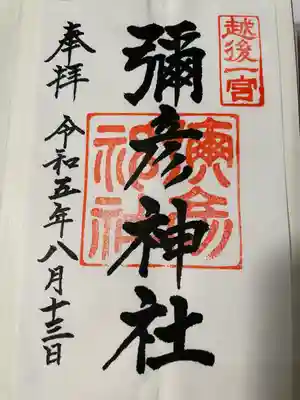 越後一宮
彌彦神社
奉拝
令和五年八月十三日